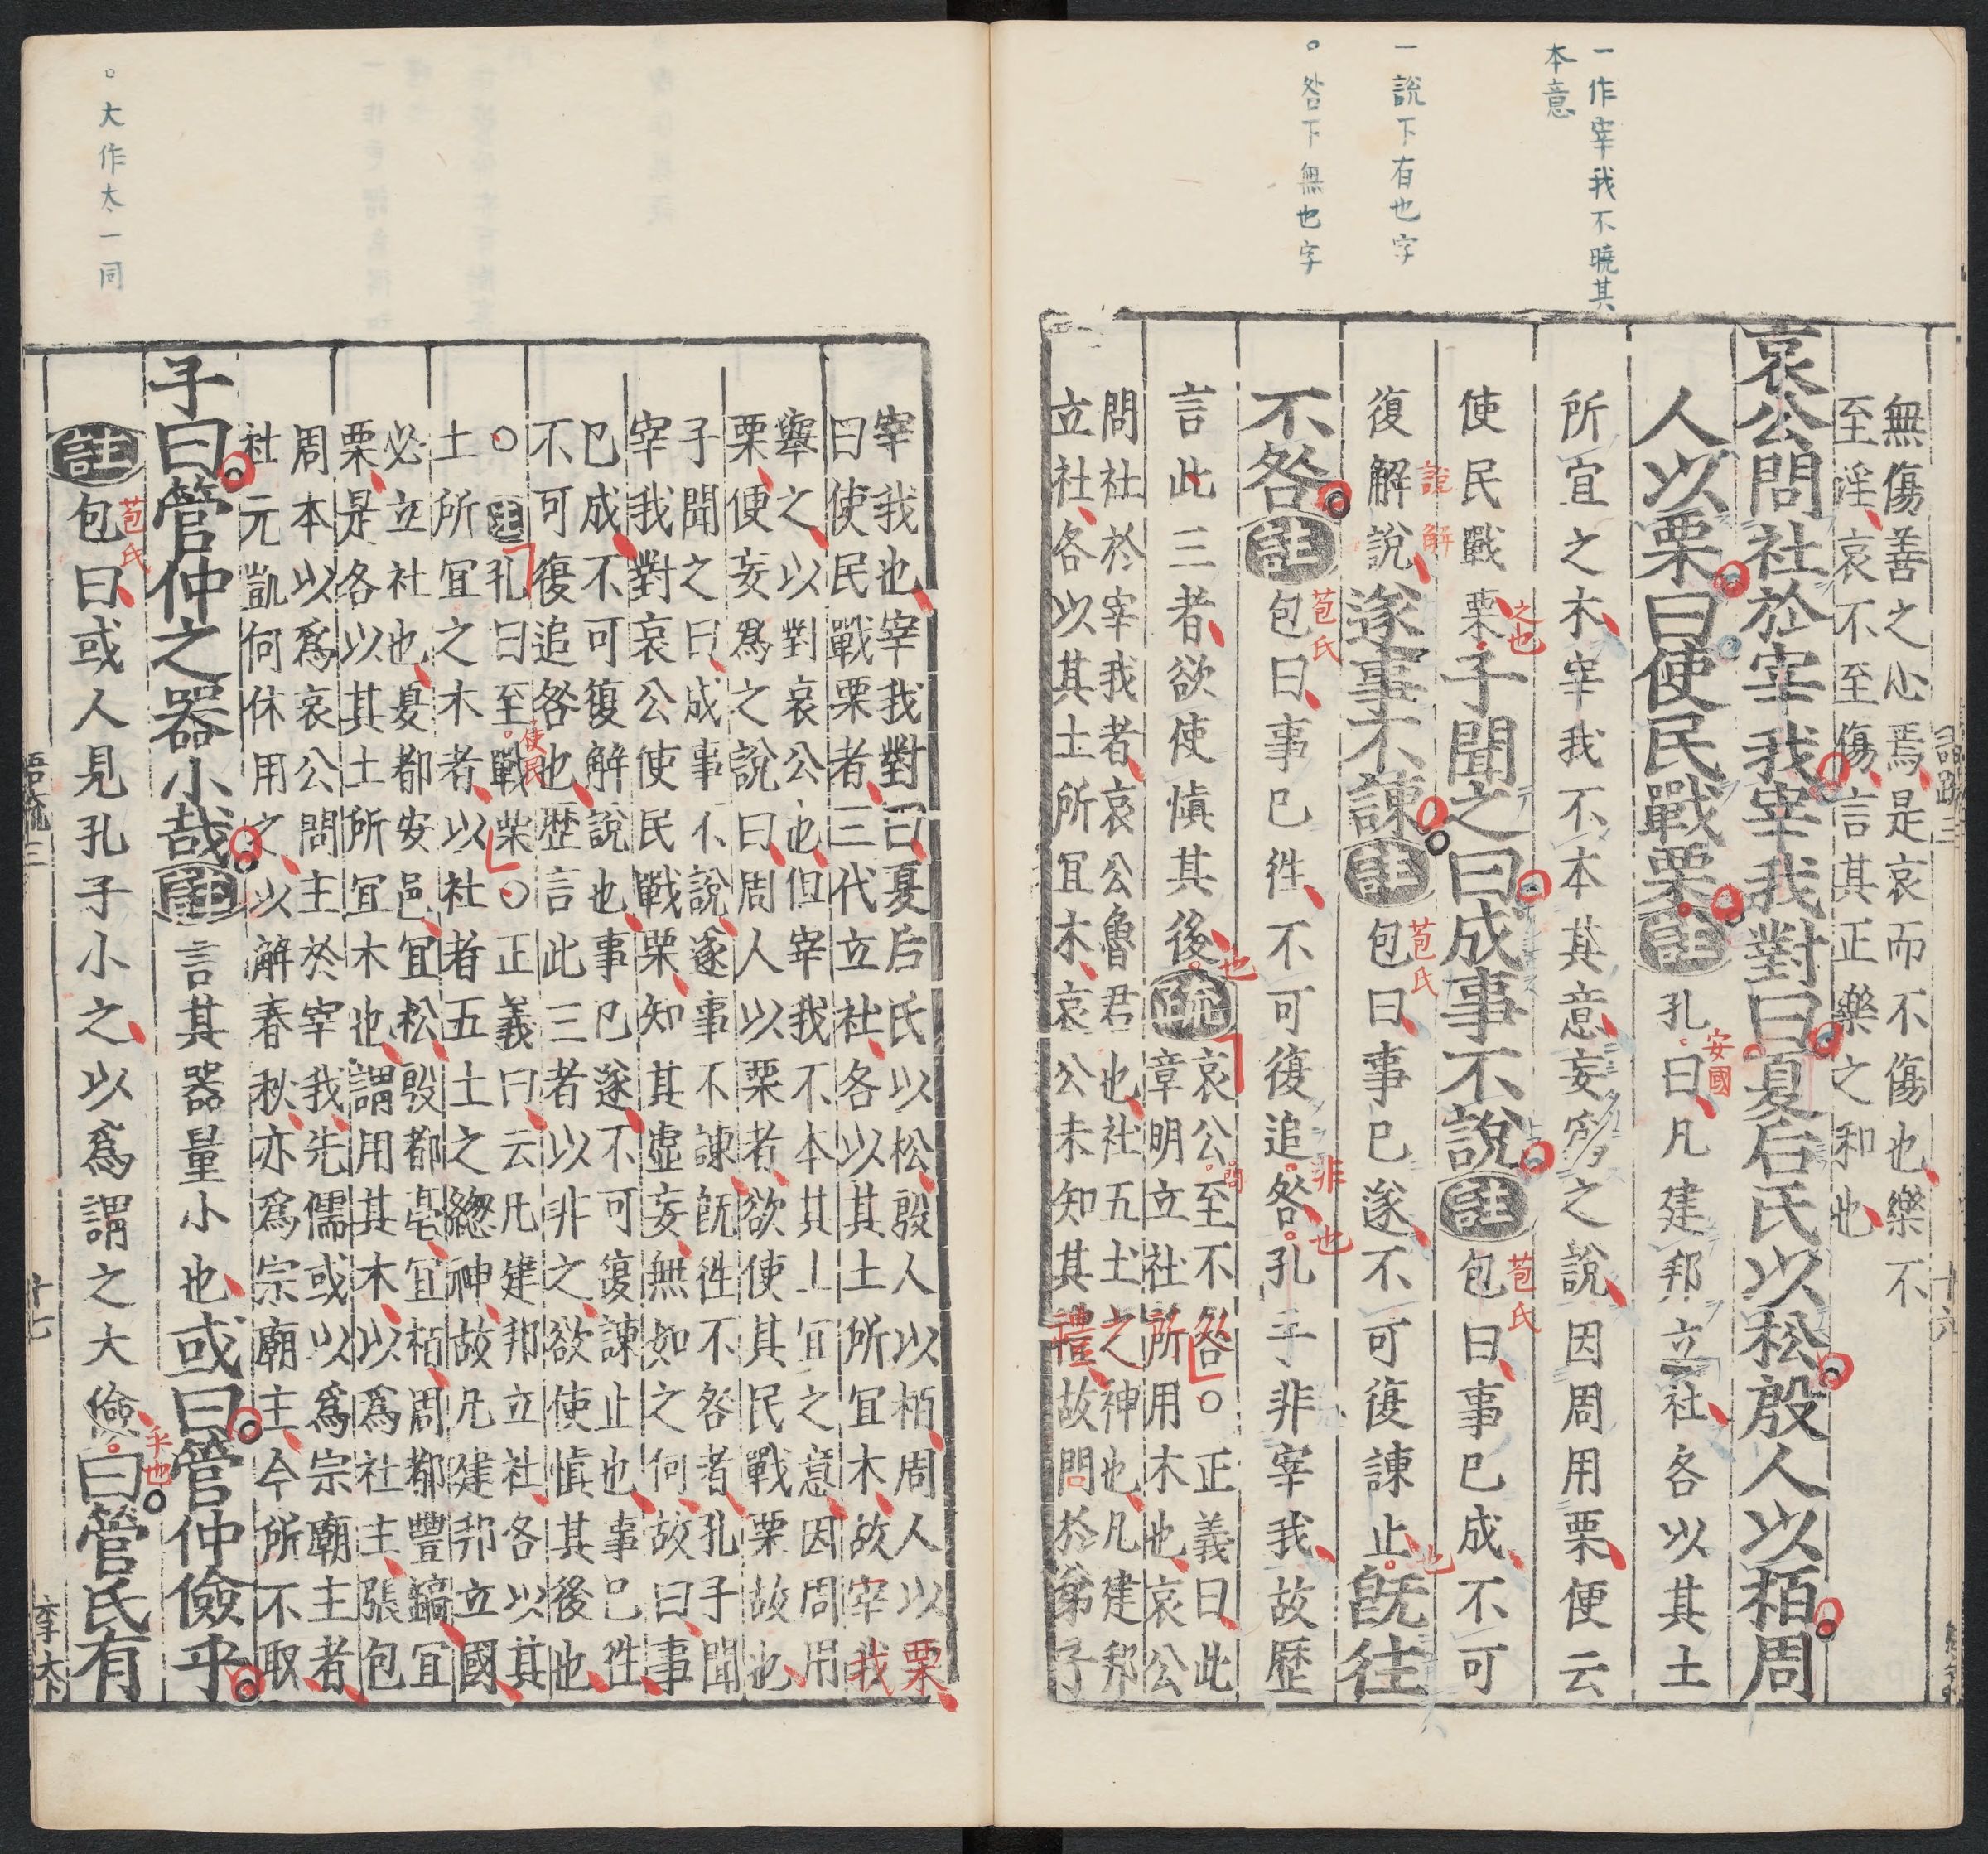 一作宰我不曉其
本意
一說下有也字
。咎下無也字
無傷善之心焉是哀而不傷也樂不
至淫哀不至傷言其正樂之和也
哀公問社於宰我宰我對曰夏后氏以松殷人以栢周
人以栗曰使民戰栗註孔曰凡建邦立社各以其土
安國
所宜之木宰我不本其意妄
之說因周用栗便云
使民戰栗子聞之曰成事不說註包曰事已成不可
之也
苞氏
復解說遂事不諫註包曰事已遂不可復諫止旣往
說解
苞氏
也
不咎註包曰事已徃不可復追咎孔子非宰我故歷
苞氏
非也
言此三者欲使愼其後疏哀公至不咎○正義曰此
也
問
章明立社所用木也哀公
問社於宰我者哀公魯君也社五土之神也凡建邦
立社各以其土所宜木哀公未知其禮故問於弟子
十六
。大作太一同
宰我也宰我對曰夏后氏以松殷人以栢周人以栗
曰使民戰栗者三代立社各以其土所宜木故宰我
舉之以對哀公也但宰我不本其土宜之意因周用
栗便妄爲之說曰周人以栗者欲使其民戰栗故也
子聞之曰成事不說遂事不諫旣徃不咎者孔子聞
宰我對哀公使民戰栗知其虛妄無如之何故曰事
已成不可復解說也事已遂不可復諫止也事已徃
不可復追咎也歷言此三者以非之欲使愼其後也
○註孔曰至戰栗○正義曰云凡建邦立社各以其
使民
土所宜之木者以社者五土之緫神故凡建邦立國
必立社也夏都安邑宜松殷都亳宜栢周都豐鎬宜
栗是各以其土所宜木也謂用其木以爲社主張包
周本以爲哀公問主於宰我先儒或以爲宗廟主者
社元凱何休用之以解春秋亦爲宗廟主今所不取
子曰管仲之器小哉註言其器量小也或曰管仲儉乎
註包曰或人見孔子小之以爲謂之大儉曰管氏有
苞氏
乎也
十七